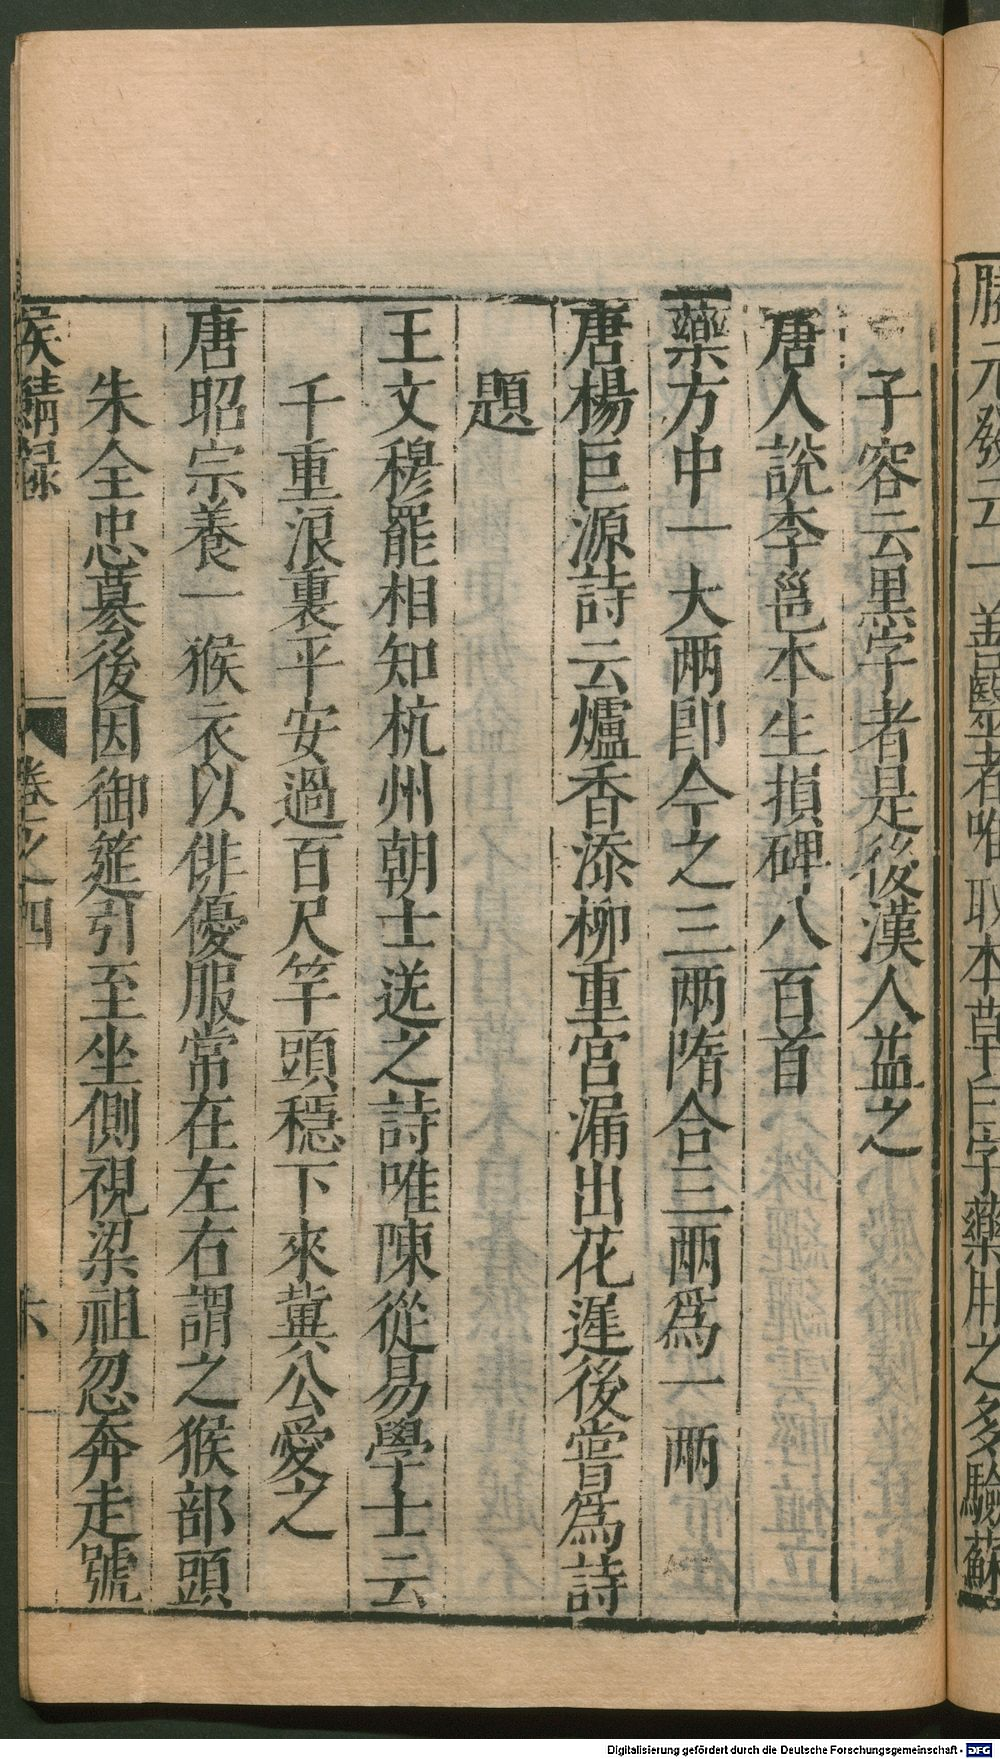 滕元發云一善醫者唯取本草白字藥用之多驗蘇
子容云黒字者是後漢人益之
唐人說李邕本生撰碑八百首
藥方中一大兩即今之三兩隋合三兩爲一兩
唐楊巨源詩云爐香添柳重宮漏出花遲後嘗爲詩
題
王文穆罷相知杭州朝士送之詩唯陳從易學士云
千重浪裏平安過百尺竿頭穩下來冀公愛之
唐昭宗養一猴衣以俳優服常在左右謂之猴部頭
朱全忠簒後因御筵引至坐側視梁祖忽奔走號
侯鯖録 卷之四 六
Digitalisierung gefördert durch die Deutsche Forschungsgemeinschaft - DFG